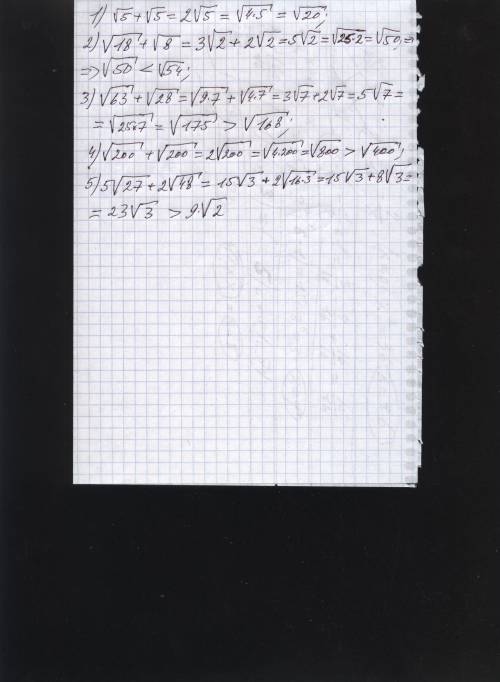 1) √5 + √5 = 2√5 = √4·5 = √20;
2) √18 + √8 = 3√2 + 2√2 = 5√2 = √25·2 = √50; ⇒
⇒ √50 < √54;
3) √63 + √28 = √9·7 + √4·7 = 3√7 + 2√7 = 5√7 =
= √25·7 = √175 > √168;
4) √200 + √200 = 2√200 = √4·200 = √800 > √400;
5) 5√27 + 2√48 = 15√3 + 2√16·3 = 15√3 + 8√3 =
= 23√3 > 9·√2